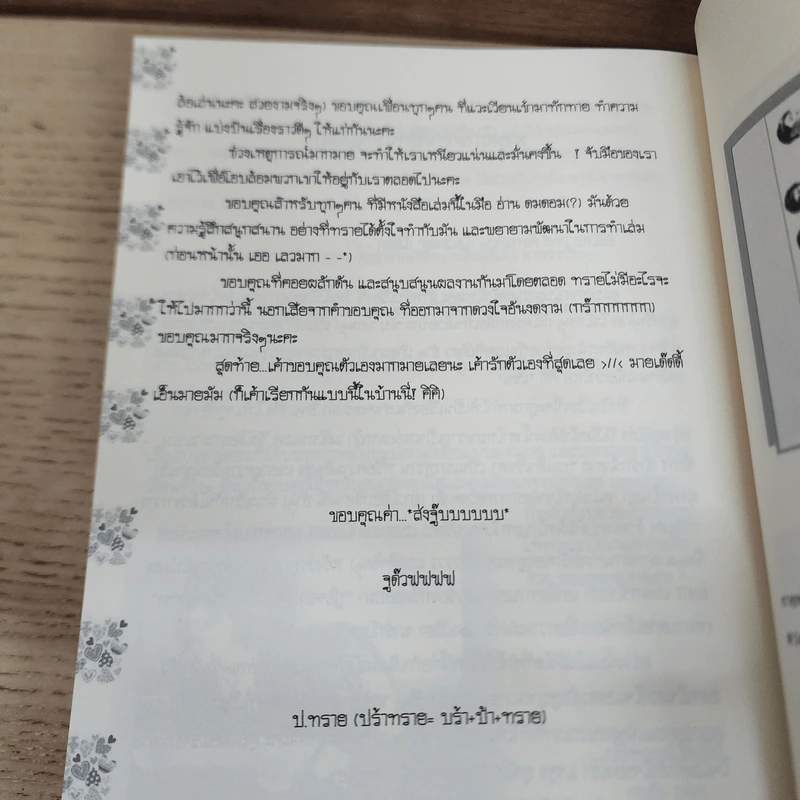 ล้อเล่นนะคะ สวยงามจริงๆ) ขอบคุณเพื่อนทุกๆคน ที่แวะเวียนเข้ามาทักทาย ทำความ
รู้จัก แบ่งปันเรื่องราวดีๆ ให้แก่กันนะคะ
ช่วงเหตุการณ์มากมาย จะทำให้เราเหนียวแน่นและมั่นคงขึ้น ! จับมือของเรา
เอาไว้เพื่อโอบล้อมพวกเขาให้อยู่กับเราตลอดไปนะคะ
ขอบคุณสำหรับทุกๆคน ที่มีหนังสือเล่มนี้ในมือ อ่าน ดมดอม(?) มันด้วย
ความรู้สึกสนุกสนาน อย่างที่ทรายได้ตั้งใจทำกับมัน และพยายามพัฒนาในการทำเล่ม
(ก่อนหน้านั้น เออ เลวมาก - -*)
ขอบคุณที่คอยผลักดัน และสนุบสนุนผลงานกันมาโดยตลอด ทรายไม่มีอะไรจะ
ให้ไปมากกว่านี้ นอกเสียจากคำขอบคุณ ที่ออกมาจากดวงใจอันงดงาม (กร๊ากกกกกก)
ขอบคุณมากจริงๆนะคะ
สุดท้าย...เค้าขอบคุณตัวเองมากมายเลยนะ เค้ารักตัวเองที่สุดเลย >//< มายเด๊ดดี้
เอ็นมายมัม (ก็เค้าเรียกกันแบบนี้ในบ้านนี่! คิคิ)
ขอบคุณค่า...*ส่งจู๊บบบบบบ*
จูด๊วฟฟฟฟ
ป.ทราย (ปร้าทราย= บร้า+ป้า+ทราย)